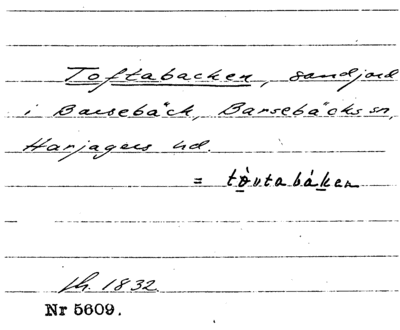 Toftabacken, sandjord
i Barsebäck, Barsebäcks sn,
Harjagers hd.
= tòvtabáken
h. 1832.
Nr 5609.